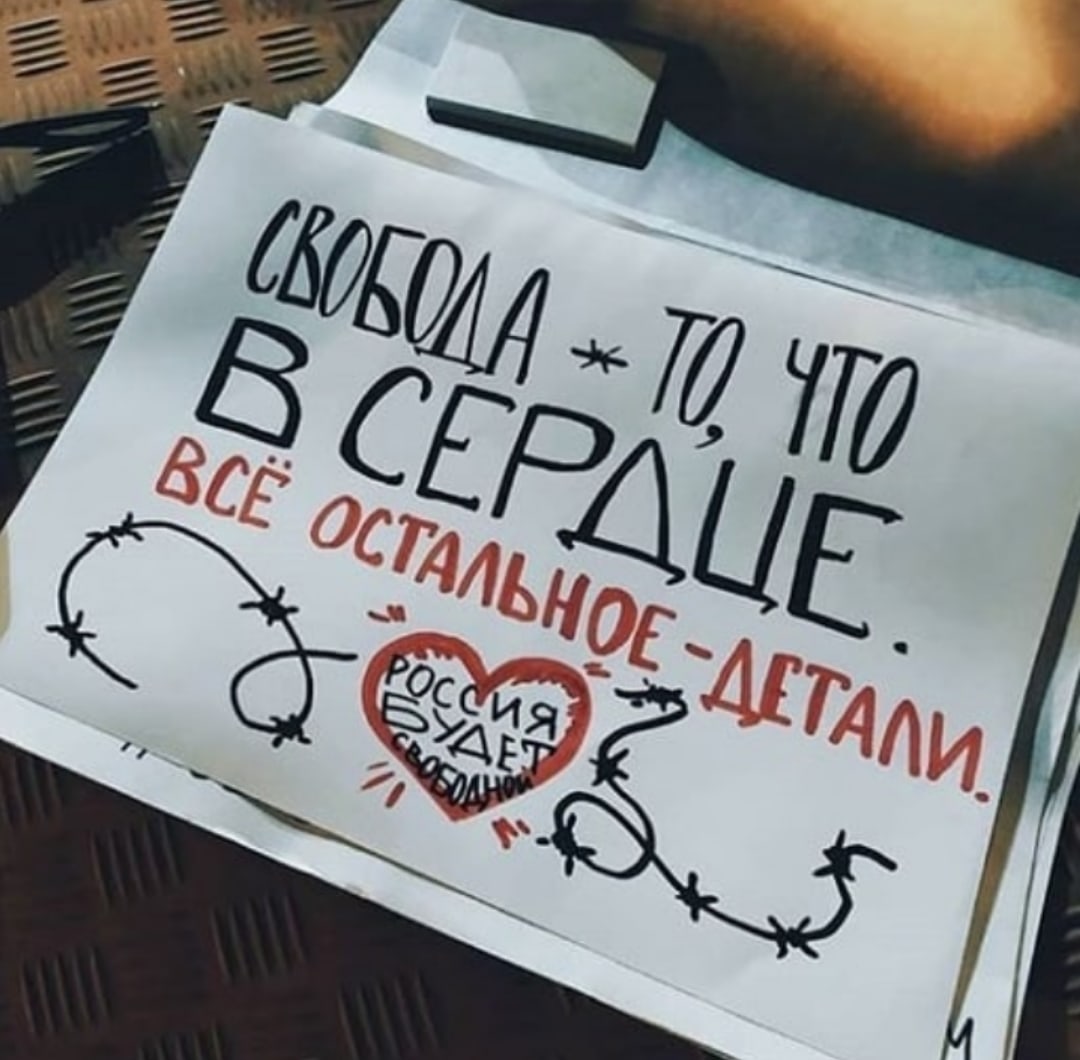 СВОБОДА * ТО, ЧТО
В СЕРДЦЕ.
ВСЁ ОСТАЛЬНОЕ - ДЕТАЛИ.
РОССИЯ
БУДЕТ
СВОБОДНОЙ